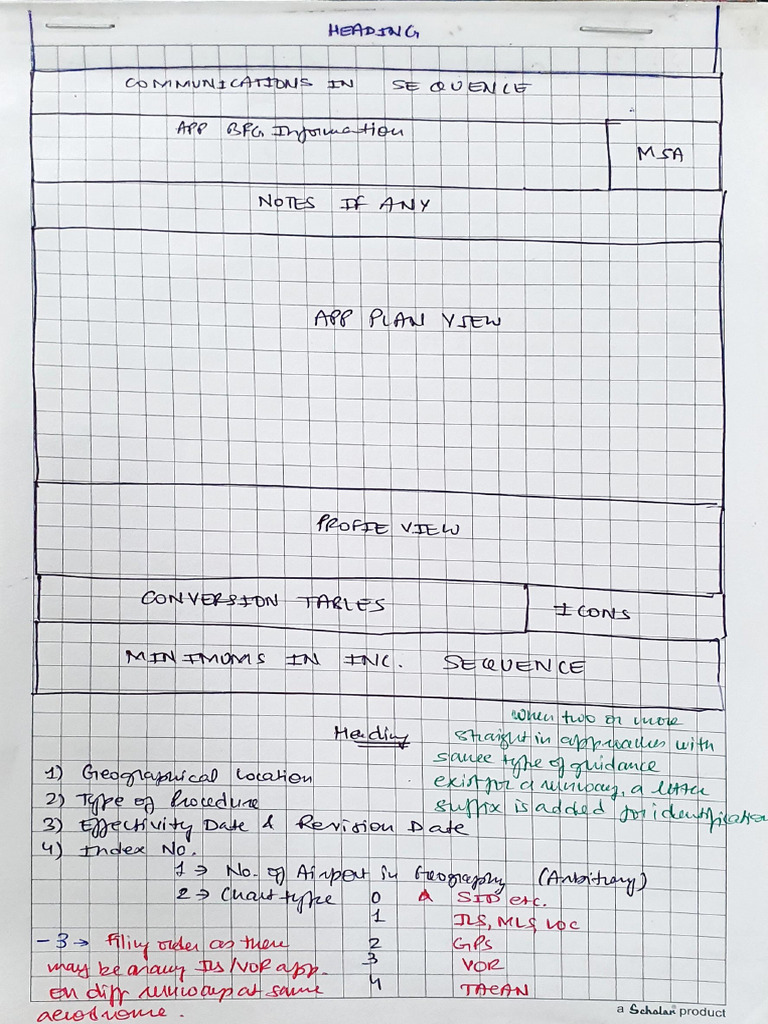 HEADING
COMMUNICATIONS IN SEQUENCE
APP BFG Information
MSA
NOTES IF ANY
APP PLAN VIEW
PROFIE VIEW
CONVERSION TABLES
ICONS
MINIMUMS IN INC. SEQUENCE
Heading
when two or more
straight in approaches with
same type of guidance
exist for a runway, a letter
suffix is added for identification
1) Geographical Location
2) Type of Procedure
3) Effectivity Date & Revision Date
4) Index No.
1 → No. of Airport in Geography (Arbitrary)
2 → Chart type 0 A SID etc.
1 ILS, MLS, LOC
2 GPS
3 VOR
4 TACAN
- 3 → Filing order as there
may be many ILS/VOR app.
on diff runways at same
aerodrome.
a Scholar product